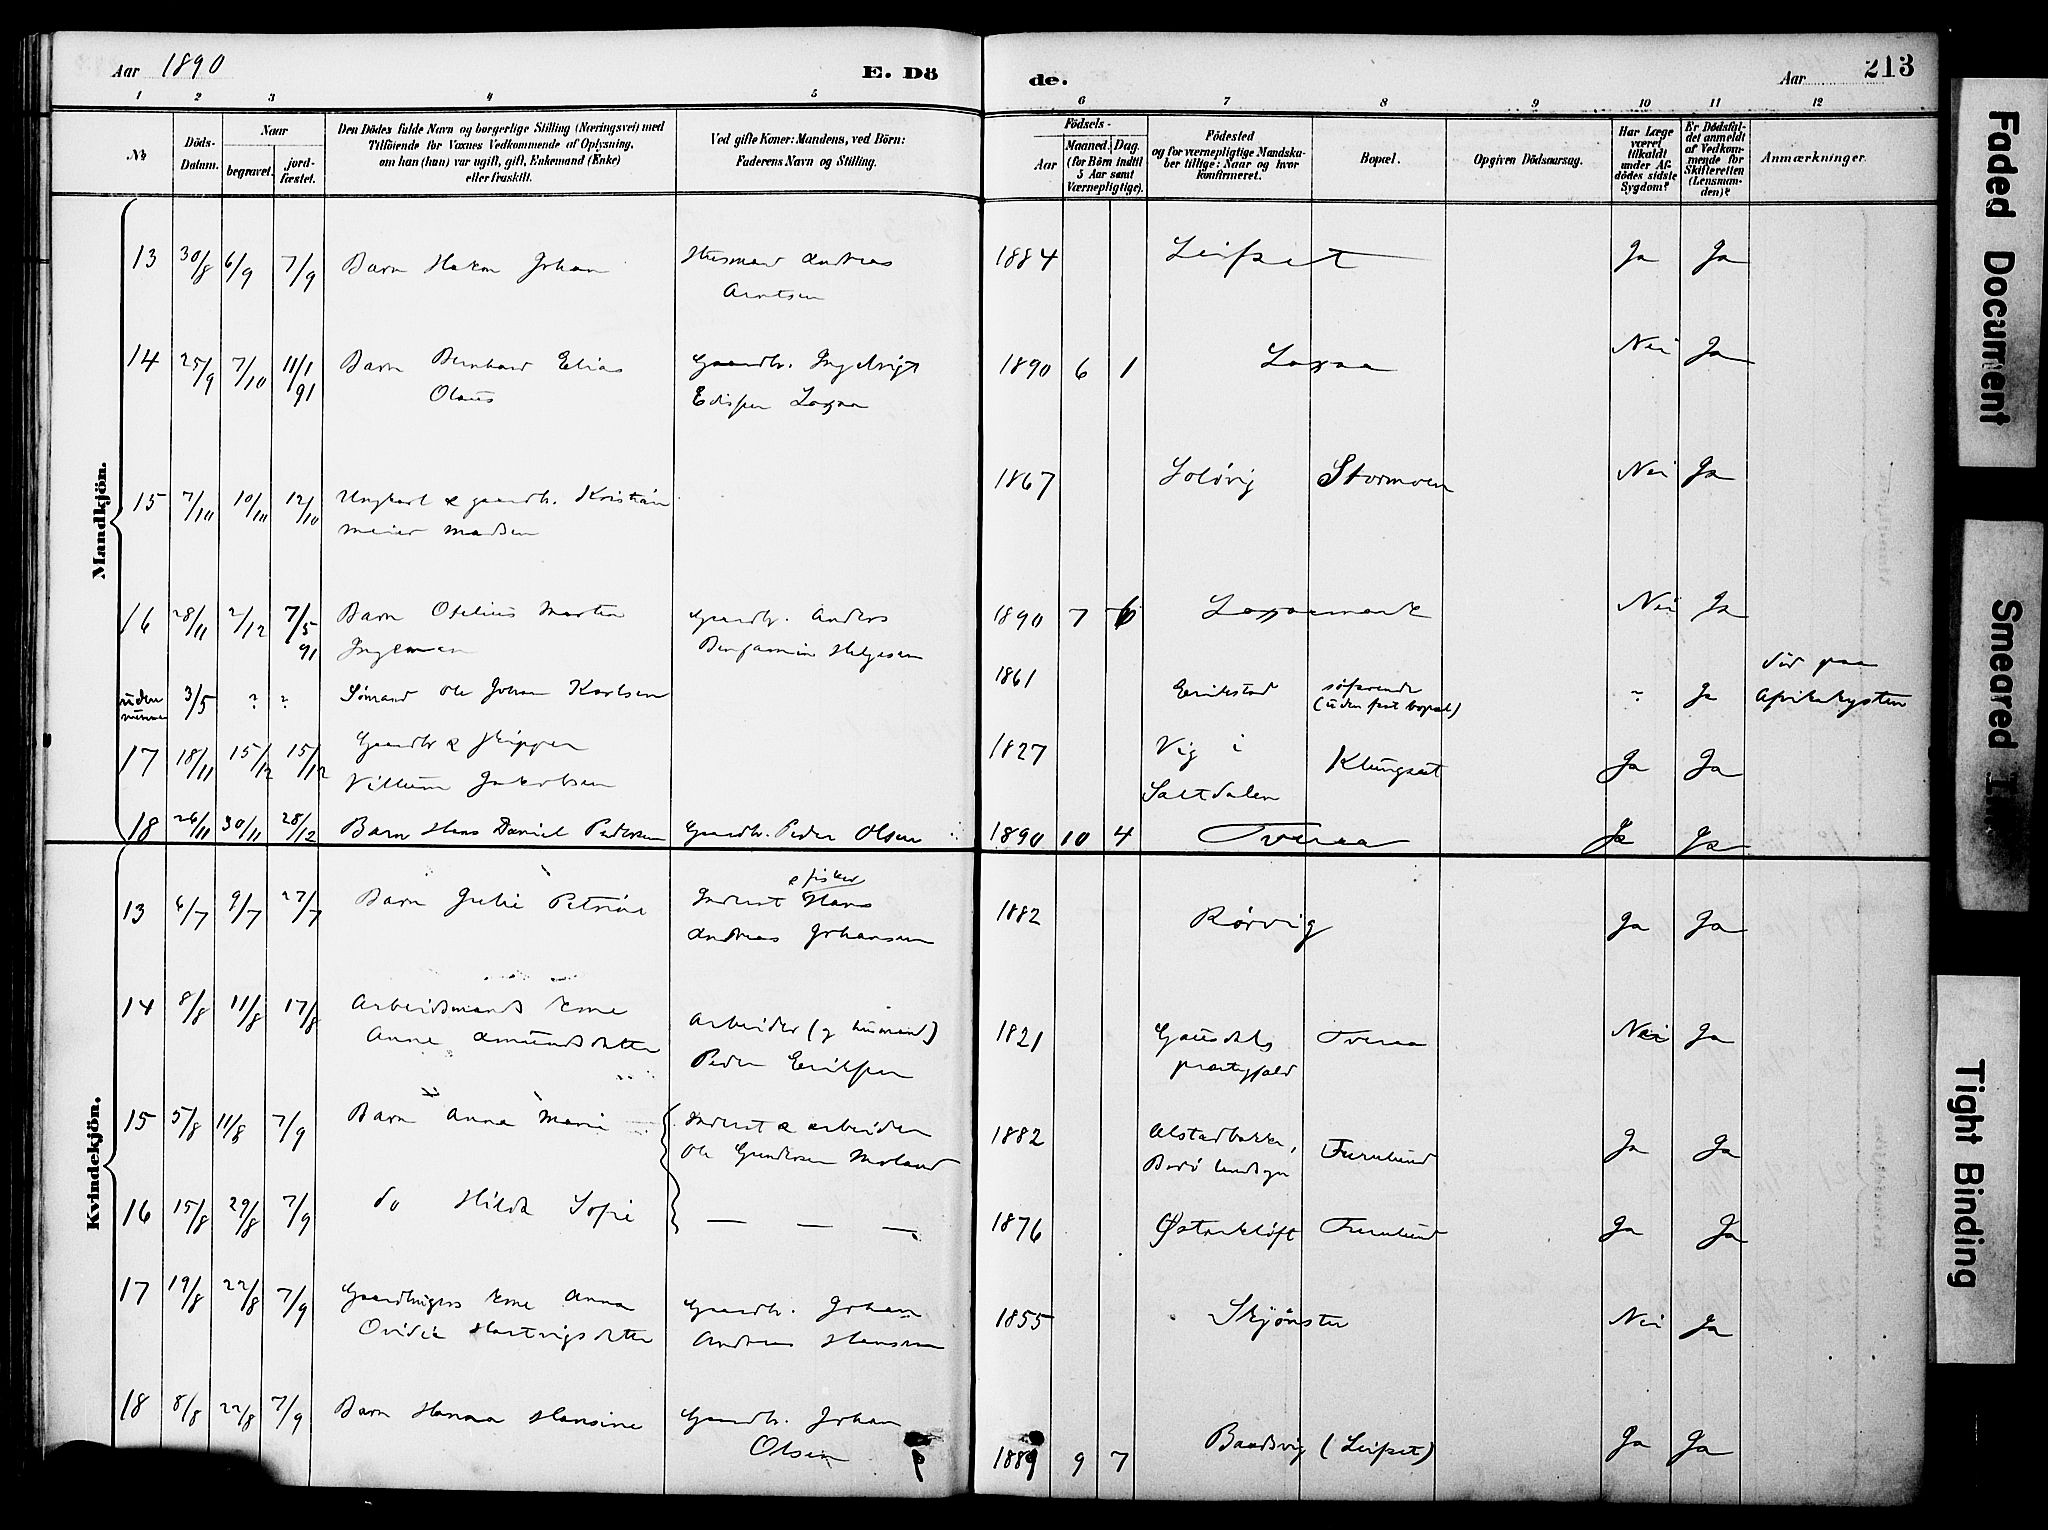 Aar 1890
E. Dö
de.
Aar
213
1 2 3 4 5 6 7 8 9 10 11 12
No
Döds-Datum.
Naar
begravet.
jord-fæstet.
Den Dödes fulde Navn og borgerlige Stilling (Næringsvei) med
Tilföiende for Voxnes Vedkommende af Oplysning,
om han (hun) var ugift, gift, Enkemand (Enke)
eller fraskilt.
Ved gifte Koner: Mandens, ved Börn:
Faderens Navn og Stilling.
Födsels-
Aar
Maaned. Dag.
(for Börn indtil
5 Aar samt
Værnepligtige).
Födested
og for værnepligtige Mandska-
ber tillige: Naar og hvor
konfirmeret.
Bopæl.
Opgiven Dödsaarsag.
Har Læge
været
tilkaldt
under Af-
dödes sidste
Sygdom?
Er Dödsfal-
det anmeldt
af Vedkom-
mende for
Skifteretten
(Lensman-
den)?
Anmærkninger.
Mandkjön.
13 30/8 6/9 7/9 Barn Hakon Johan Husmand Andreas 1884 Leifset Ja Ja
Arntsen
14 25/9 7/10 11/1 91 Barn Bernhard Elias Gaardbr. Ingebrigt 1890 6 1 Laxaa Nei Ja
Olaus Laxaa
15 7/10 10/10 12/10 Ungkarl & gaardbr. Kristian 1867 Solövig Stormoen Nei Ja
Meier Madsen
16 28/11 2/12 7/5 91 Barn Otelius Martin Gaardbr. Anders 1890 7 Laxaamark Nei Ja
Ingeman Benjamin Helgesen
uden nummer 3/5 ? ? Sömand Ole Johan Karlsen 1861 Erikstad söfarende (uden fast bopæl) ? Ja Död paa
Afrikakysten
17 18/11 15/12 15/12 Gaardbr & Skipper 1827 Vig i Klungset Ja Ja
Villum Jakobsen Saltdalen
18 26/11 30/11 28/12 Barn Hans Daniel Pedersen Gaardbr. Peder Olsen 1890 10 4 Tveraa Ja Ja
Kvindekjön.
13 6/7 9/7 27/7 Barn Julie Petrine Inderst & fisker Hans 1882 Rørvig Ja Ja
Andreas Johansen
14 8/8 11/8 17/8 Arbeidsmands kone Arbeider (g husmand) 1821 Gausdals Tveraa Nei Ja
Anne Amundsdatter Peder Eriksen præstegjæld
15 5/8 11/8 7/9 Barn Anna Marie Inderst & arbeider 1882 Alstadbakke, Furulund Ja Ja
Ole Gundersen Moland Bodö landsogn
16 15/8 29/8 7/9 do Hilda Sofie — — — 1876 Østerkløft Furulund Ja Ja
17 19/8 22/8 7/9 Gaardbrugers kone Anna Gaardbr. Johan 1855 Skjönster Nei Ja
Ovidia Hartvigsdatter Andreas Hansen
18 8/8 22/8 7/9 Barn Hanna Hansine Gaardbr. Johan 1889 9 7 Baadsvig (Leifset) Ja Ja
Olsen
Faded Document
Smeared Ink
Tight Binding